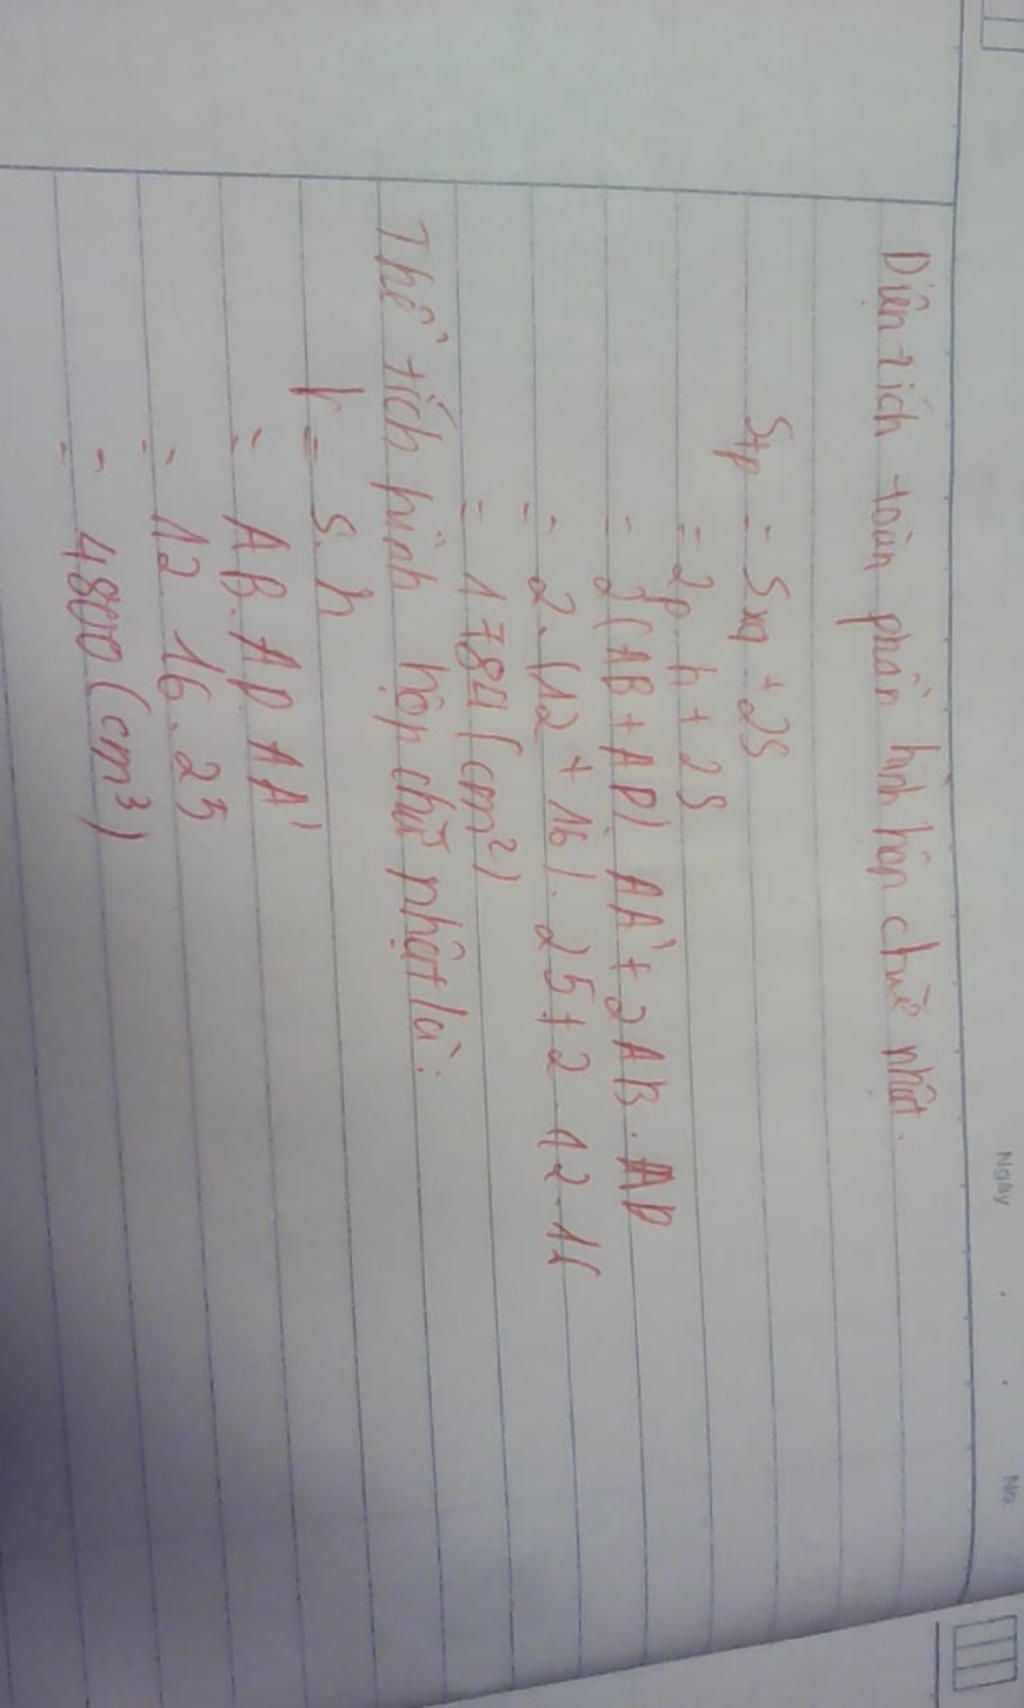 Ngày . . No.
Diện tích toàn phần hình hộp chữ nhật.
Stp = Sxq + 2S
= 2p. h + 2S
= 2(AB + AD). AA' + 2AB. AD
= 2. (12 + 16). 25 + 2. 12. 16
= 1784 (cm²)
Thể tích hình hộp chữ nhật là:
V = S. h
= AB. AD AA'
= 12 16. 25
= 4800 (cm³)